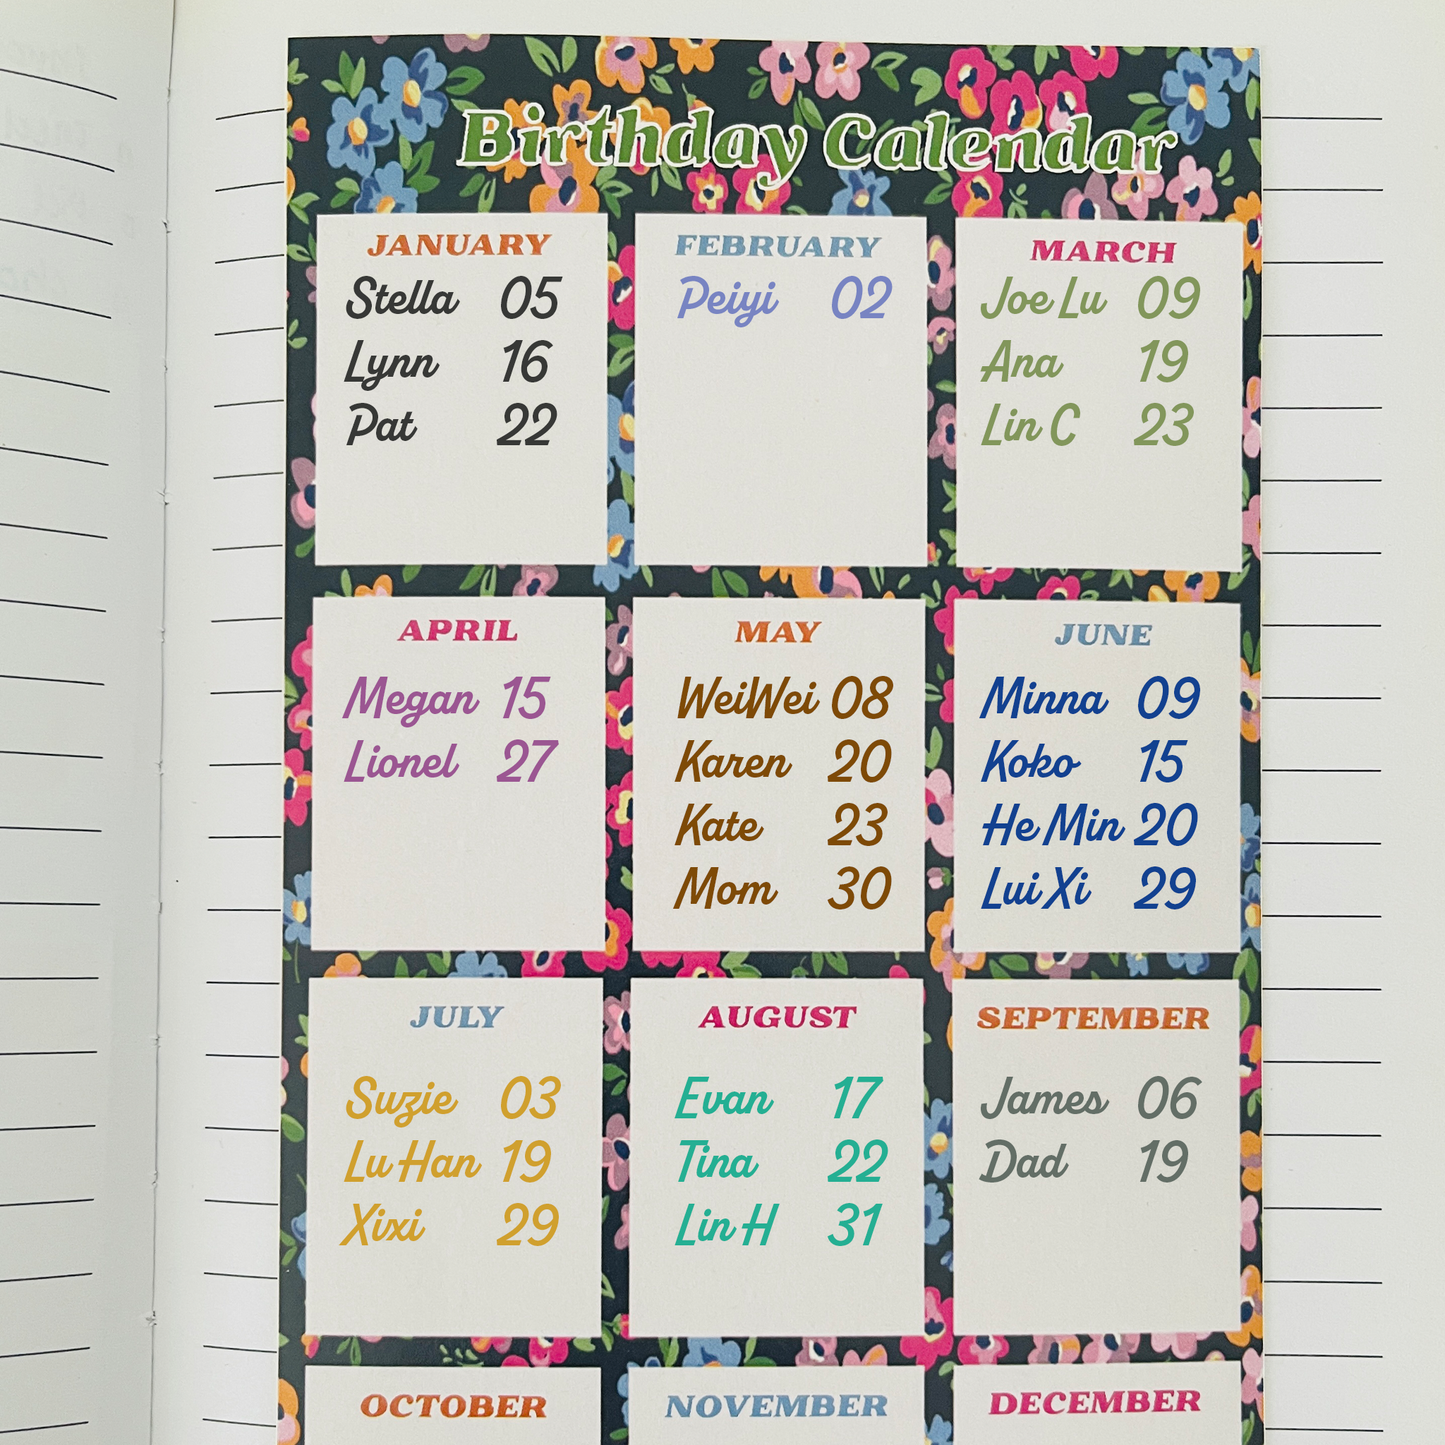 Birthday Calendar
JANUARY
Stella 05
Lynn 16
Pat 22
FEBRUARY
Peiyi 02
MARCH
Joe Lu 09
Ana 19
Lin C 23
APRIL
Megan 15
Lionel 27
MAY
WeiWei 08
Karen 20
Kate 23
Mom 30
JUNE
Minna 09
Koko 15
He Min 20
Lui Xi 29
JULY
Suzie 03
Lu Han 19
Xixi 29
AUGUST
Evan 17
Tina 22
Lin H 31
SEPTEMBER
James 06
Dad 19
OCTOBER
NOVEMBER
DECEMBER